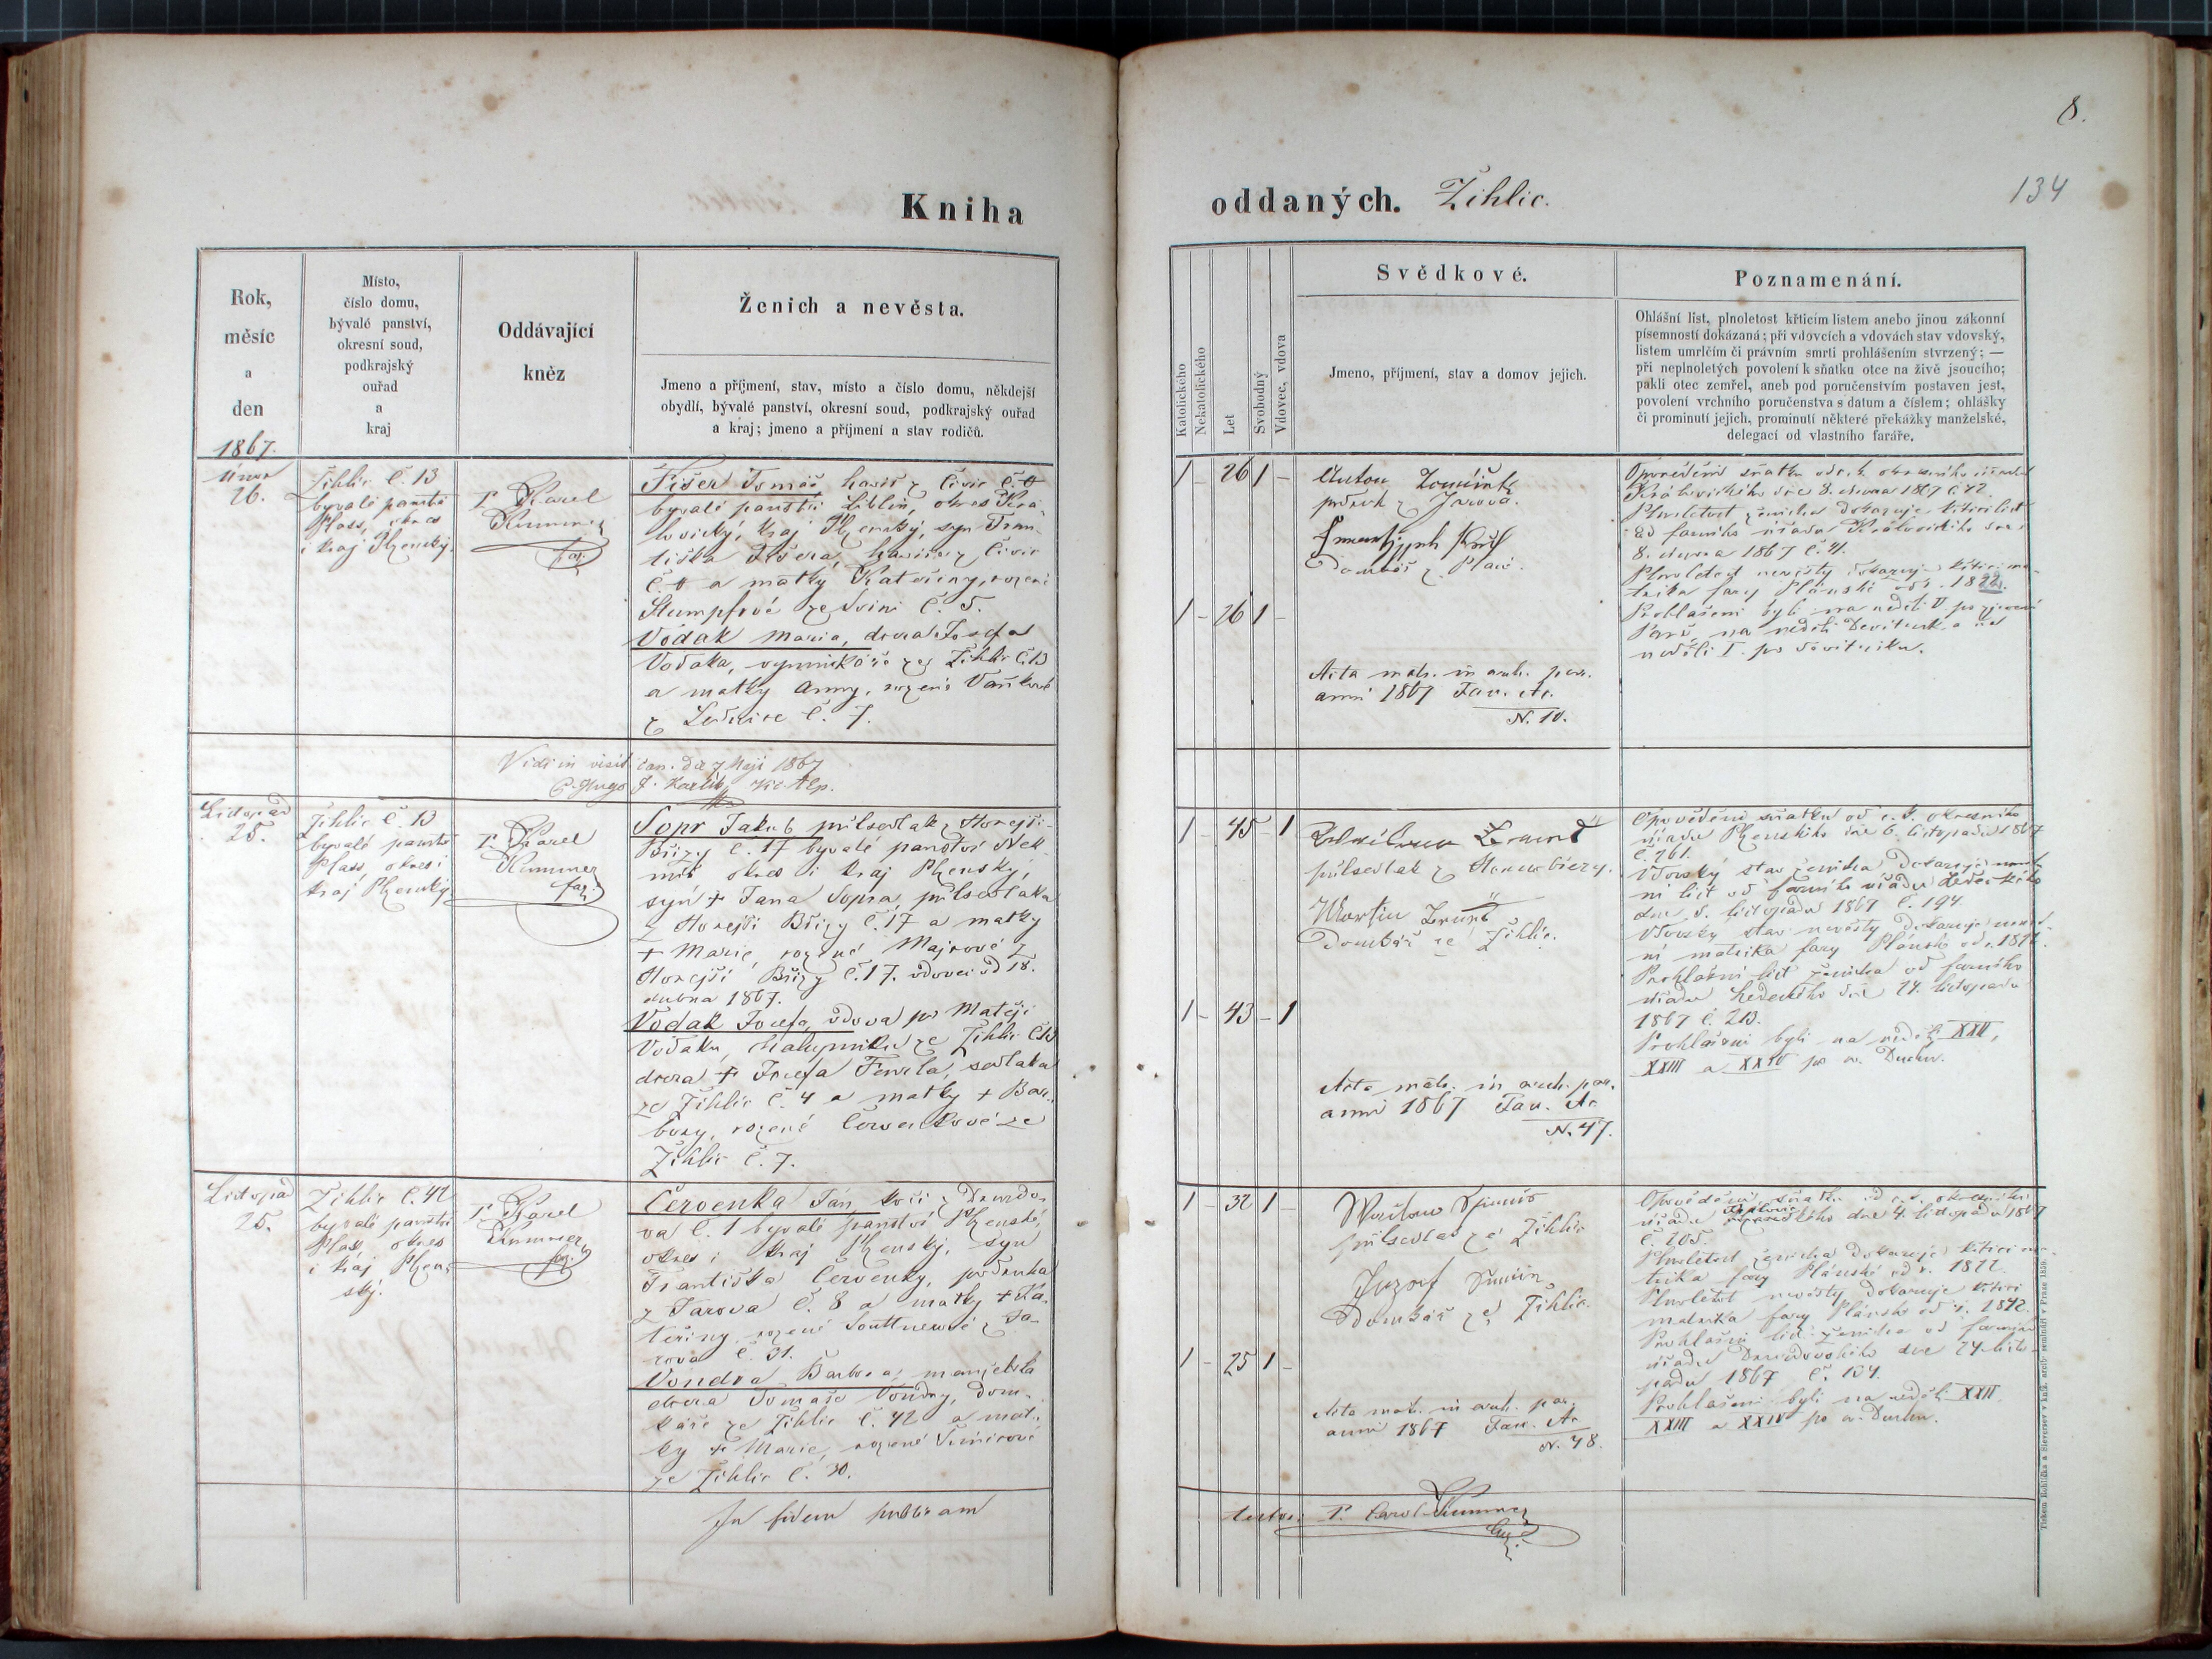 8.
134
Kniha
oddaných. Žihlic.
Rok,
měsíc
a
den
1867.
Místo,
číslo domu,
bývalé panství,
okresní soud,
podkrajský
ouřad
a
kraj
Oddávající
kněz
Ženich a nevěsta.
Jmeno a příjmení, stav, místo a číslo domu, někdejší
obydlí, bývalé panství, okresní soud, podkrajský ouřad
a kraj; jmeno a příjmení a stav rodičů.
Katolického
Nekatolického
Let
Svobodný
Vdovec, vdova
Svědkové.
Jmeno, příjmení, stav a domov jejich.
Poznamenání.
Ohlášní list, plnoletost křticím listem anebo jinou zákonní
písemností dokázaná; při vdovcích a vdovách stav vdovský,
listem umrlčím či právním smrti prohlášením stvrzený; —
při neplnoletých povolení k sňatku otce na živě jsoucího;
pakli otec zemřel, aneb pod poručenstvím postaven jest,
povolení vrchního poručenstva s datum a číslem; ohlášky
či prominutí jejich, prominutí některé překážky manželské,
delegací od vlastního faráře.
února
26.
Žihlic č. 13
byvalé panství
Plass, okres
i kraj Plzenský.
P. Karel
Kummer
far.
Fišer Tomáš havíř z Čivic č.
byvalé panství Liblin, okres Kra-
lovický, kraj Plzenský, syn Fran-
tiška Fišera, havíře z Čivic
a matky Kateřiny, rozené
Stumpfové ze č. 5.
Vodak Maria, dcera Josefa
Vodaka, vyminkáře ze Žihlic č. 13
a matky Anny, rozené Vaňkové
z Lednice č. 7.
1 - 26 1 -
1 - 26 1 -
Anton
z Jarova.
Domkář z Planě.
Acta mat. in arch. par.
anni 1867 Fasc. Ac.
N. 10.
Opovědění sňatku od c. k. okresního úřadu
Královického dne 8. února 1867 č. 42.
Plnoletost ženicha dokazuje křticí list
od farního úřadu Kralovického dne
8. února 1867 č. 41.
Plnoletost nevěsty dokazuje křticí ma-
trika fary Plánské od r. 1822.
Prohlášeni byli na neděli V. po zjevení
Páně, na neděli Devítník a na
neděli I. po devítníku.
Vidi in visit. can. die 7 Maji 1867
P. Hugo J. Karlík Vic Aep.
Listopad
25.
Žihlic č. 13
byvalé panství
Plass, okres i
kraj Plzenský
P. Karel
Kummer
far.
Sopr Jakub půlsedlak z Hořejší-
Břízy č. 17 byvalé panství Nek-
míř okres i kraj Plzenský,
syn + Jana Sopra, půlsedlaka
z Hořejší Břízy č. 17 a matky
+ Marie, rozené Majrové z
Hořejší Břízy č. 17. vdovec od 18.
dubna 1867.
Vodak Josefa, vdova po Matěji
Vodaku, chalupníku ze Žihlic č. 13
dcera + Josefa Fencla, sedlaka
ze Žihlic č. 4 a matky + Bar-
bory, rozené Červenkové ze
Žihlic č. 7.
1 - 45 - 1
1 - 43 - 1
půlsedlak z
Martin
Domkář ze Žihlic.
Acta mat. in arch. par.
anni 1867 Fasc. Ac
N. 47.
Opovědění sňatku od c. k. okresního
úřadu Plzenského dne 6. listopadu 1867
č. 261.
Vdovský stav ženicha dokazuje umrt-
ní list od farního úřadu Ledeckého
dne 5. listopadu 1867 č. 194.
Vdovský stav nevěsty dokazuje umrt-
ní matrika fary Plánské od r.
Prohlášní list ženicha od farního
úřadu Ledeckého dne 24. listopadu
1867 č. 213.
Prohlášeni byli na neděli XXII,
XXIII a XXIV po sv. Duchu.
Listopad
25.
Žihlic č. 42
byvalé panství
Plass, okres
i kraj Plzen-
ský.
P. Karel
Kummer
far.
Červenka Jan kočí z Druzdo-
va č. 1 byvalé panství Plzenské,
okres i kraj Plzenský, syn
Františka Červenky, podruha
z Jarova č. 8 a matky + Ka-
teřiny, rozené z Ja-
rova č. 31.
Vondra Barbora, manželská
dcera Tomaše Vondry, dom-
káře ze Žihlic č. 42 a mat-
ky + Marie, rozené Šimicové
ze Žihlic č. 30.
1 - 32 1 -
1 - 25 1 -
půlsedlak ze Žihlic
Josef
Domkář ze Žihlic.
Acta mat. in arch. par.
anni 1867 Fasc. Ac
N. 48.
Opovědění sňatku od c. k. okresního
úřadu dne 4. listopadu 1867
č. 205.
Plnoletost ženicha dokazuje křticí ma-
trika fary Plánské od r.
Plnoletost nevěsty dokazuje křticí
matrika fary Plánské od r. 1842.
Prohlášní list ženicha od farního
úřadu Druzdovského dne 24. listo-
padu 1867 č. 104.
Prohlášeni byli na neděli XXII
XXIII a XXIV po sv. Duchu.
In fidem publicam
testor: P. Carol Kummer
Tiskem Rohlíčka a Sieversev v kníž. arcib. semináři v Praze 1859.